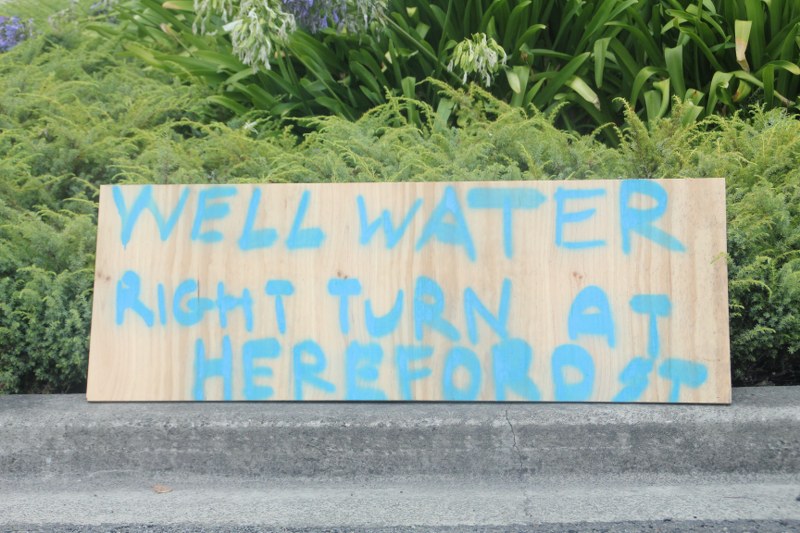 WELL WATER
RIGHT TURN AT
HEREFORD ST